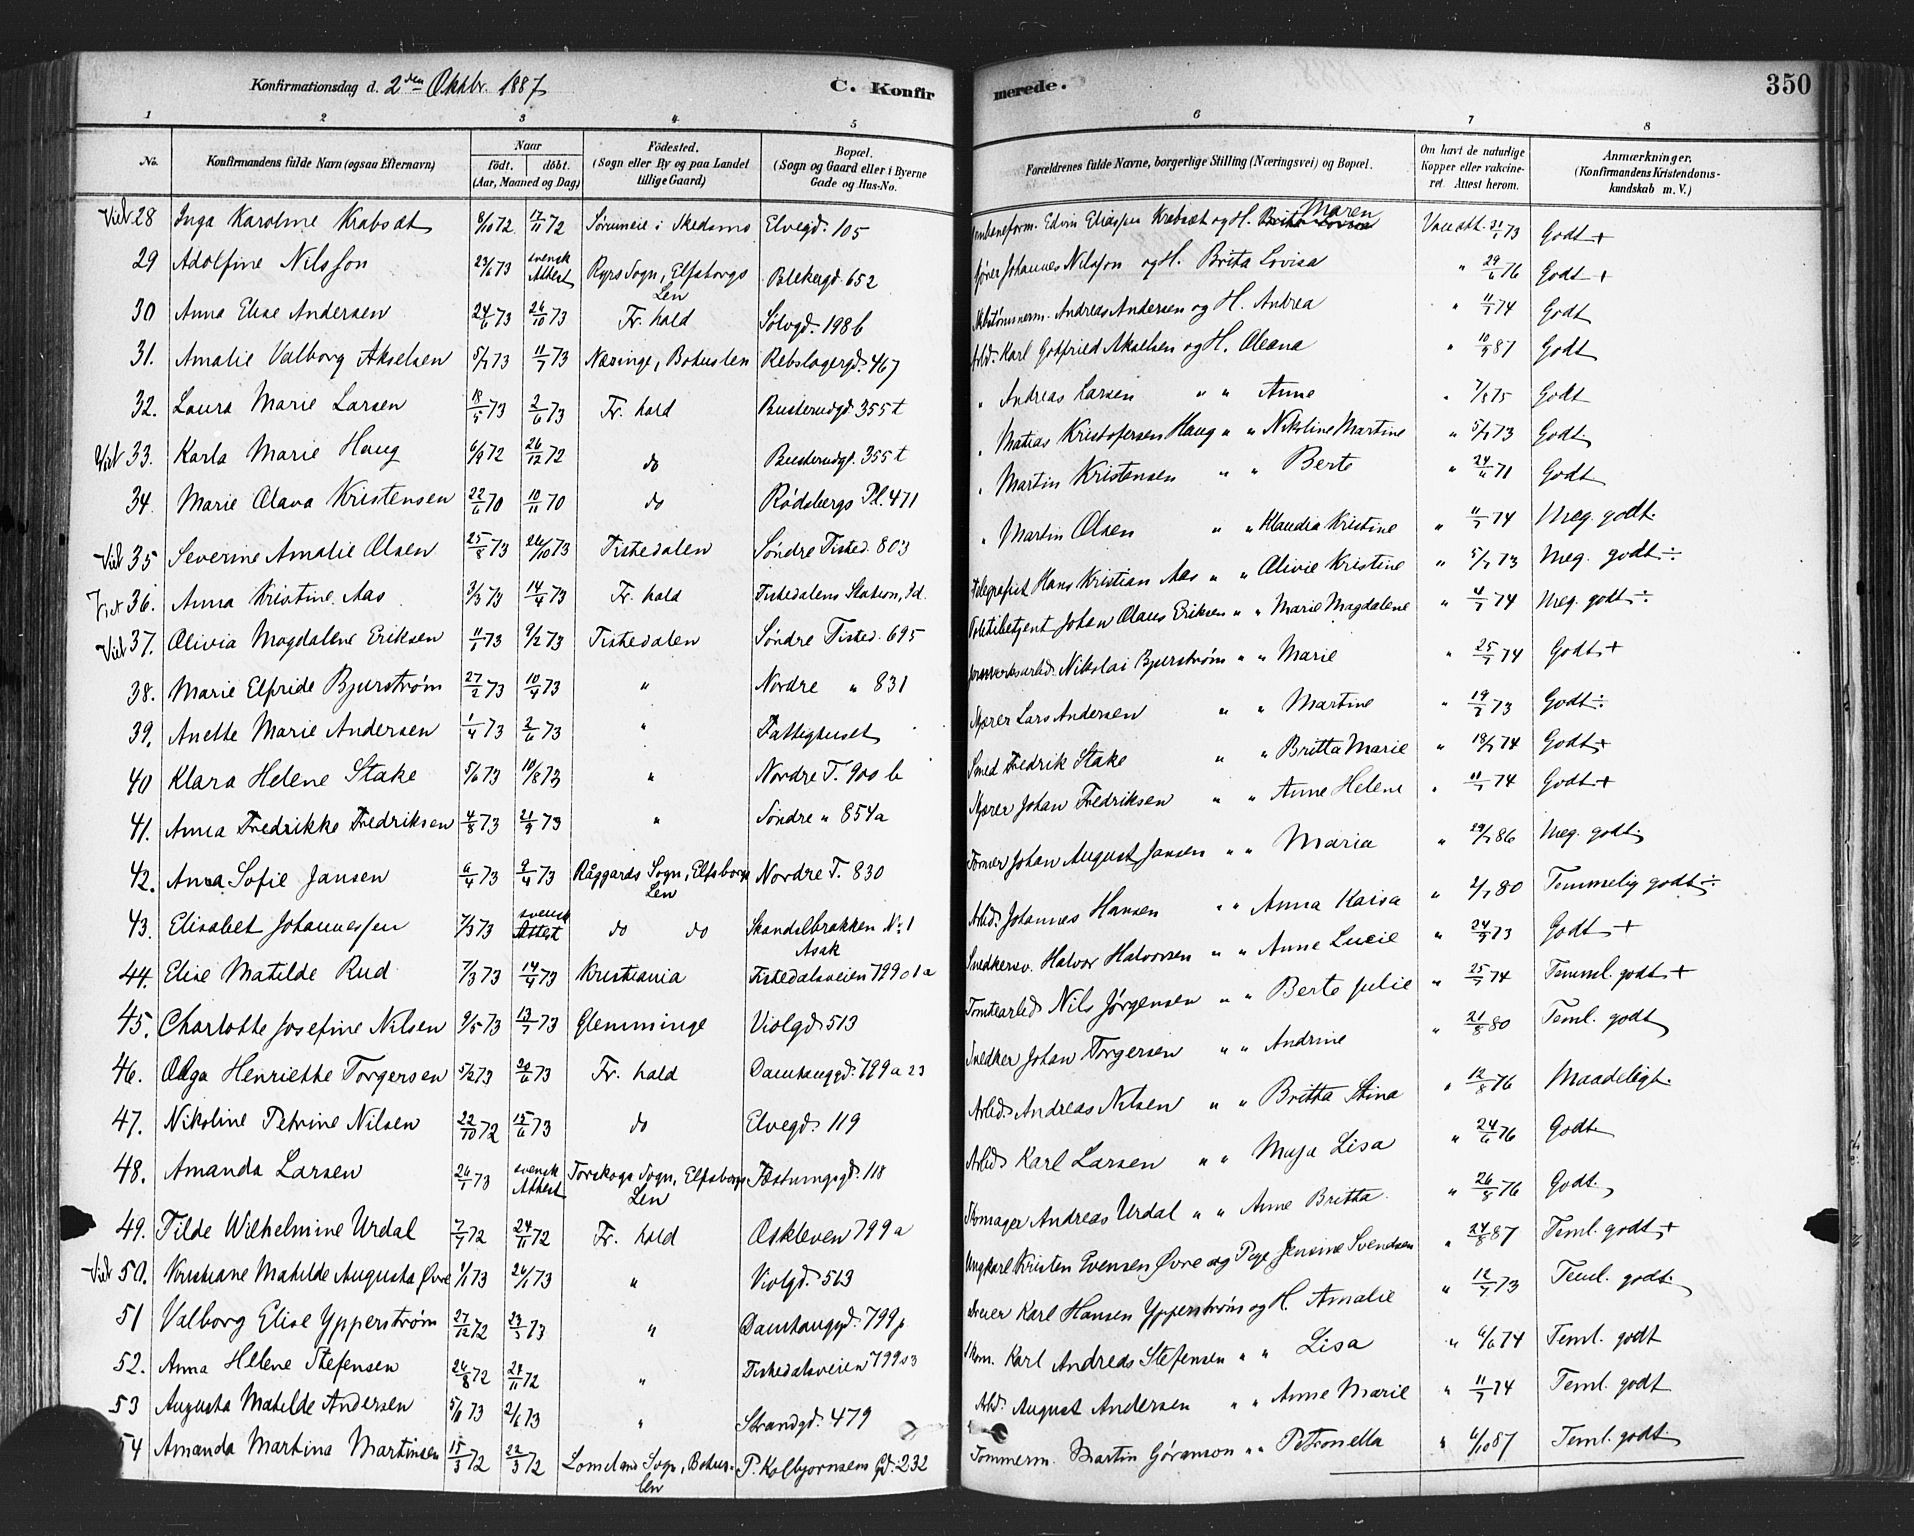 Konfirmationsdag d. 2den Oktbr. 1887
C. Konfir
merede.
350
1 2 3 4 5 6 7 8
No.
Konfirmandens fulde Navn (ogsaa Efternavn)
Naar
födt. döbt.
(Aar, Maaned og Dag)
Födested.
(Sogn eller By og paa Landet tillige Gaard)
Bopæl.
(Sogn og Gaard eller i Byerne Gade og Hus-No.
Forældrenes fulde Navne, borgerlige Stilling (Næringsvei) og Bopæl.
Om havt de naturlige Kopper eller vakcineret. Attest herom.
Anmærkninger.
(Konfirmandens Kristendomskundskab m. V.)
28 Inga Karoline Krabsæt 72 72 i Skedsmo Elvegd. 105 Edvin Eliassen Krabsæt og H. Maren 73 Godt +
29 Adolfine Nilsson 23/6 73 svensk Attest Ryrs Sogn, Elfsborgs Len Blekergd. 652 Johannes Nilsson og H. Brita Lovisa " 29/6 76 Godt +
30 Anna Elise Andersen 24/6 73 26/10 73 Fr. hald Sölvgd. 198 b Andreas Andersen og H. Andrea " 74 Godt
31. Amalie Valborg Akselsen 5/7 73 73 Næsinge, Bohuslen Rebslagergd. 467 Arbd. Karl Gotfried Akselsen og H. Oleana " 87 Godt
32. Laura Marie Larsen 18/5 73 2/6 73 Fr. hald Busterudgd. 355 t " Andreas Larsen " " Anne " 75 Godt
33. Karla Marie Haug 6/9 72 26/12 72 do Busterudgd. 355 t " Matias Kristofersen Haug " " Nikoline Martine " 5/7 73 Godt
34. Marie Olava Kristensen 22/6 70 10/11 70 do Rödsbergs Pl. 471 " Martin Kristensen " " Berte " 71 Godt
35 Severine Amalie Olsen 25/8 73 26/10 73 Tistedalen Söndre Tisted. 803 " Martin Olsen " " Klaudia Kristine " 74 Meg. godt.
36. Anna Kristine Aas 3/3 73 14/4 73 Fr. hald Tistedalens Station, Id. Telegrafist Hans Kristian Aas " " Olivie Kristine " 5/7 73 Meg. godt ÷
37. Olivia Magdalene Eriksen 73 9/2 73 Tistedalen Söndre Tisted. 695 Politibetjent Johan Olaus Eriksen " " Marie Magdalene " 74 Meg. godt ÷
38. Marie Elfride Bjurström 27/2 73 10/4 73 " Nordre " 831 Nikolai Bjurström " " Marie " 25/7 74 Godt +
39. Anette Marie Andersen 1/4 73 2/6 73 " Fattighuset Skjærer Lars Andersen " " Martine " 73 Godt ÷
40 Klara Helene Stake 5/6 73 10/8 73 " Nordre T. 900 b Smed Fredrik Stake " " Britta Marie " 18/7 74 Godt +
41. Anna Fredrikke Fredriksen 4/8 73 21/9 73 " Söndre " 854 a Johan Fredriksen " " Anne Helene " 74 Godt +
42. Anna Sofie Jansen 6/4 73 9/4 73 Råggards Sogn, Elfsborgs Len Nordre T. 830 Johan August Jansen " " Maria " 86 Meg. godt.
43. Elisabet Johannessen 7/3 73 svensk Attest do do Skandelbrakken No. 1 Asak Arbd. Johannes Hansen " " Anna Kaisa " 80 Temmelig godt ÷
44. Elise Matilde Rud 7/3 73 14/4 73 Kristiania Tistedalsveien 799 Snedkersv. Halvor Halvorsen " " Anne Lucie " 73 Godt +
45. Charlotte Josefine Nilsen 9/5 73 13/7 73 Glemminge Violgd. 513 Tomtearbd. Nils Jørgensen " " Berte Julie " 25/7 74 Temml. godt +
46. Olga Henriette Torgersen 5/2 73 73 Fr. hald Damhaugd. 799 a 23 Snedker Johan Torgersen " " Andrine " 21/8 80 Teml. godt
47. Nikoline Petrine Nilsen 22/10 72 15/6 73 do Elvegd. 119 Arbd. Andreas Nilsen " " Britta Stina " 12/8 76 Maadeligt.
48. Amanda Larsen 73 svensk Attest Torskogs Sogn, Elfsborgs Len Fæstningsgd. 118 Arbd. Karl Larsen " " Maja Lisa " 24/6 76 Godt
49. Tilde Wilhelmine Urdal 72 24/11 72 Fr. hald Oskleven 799 a Skomager Andreas Urdal " " Anne Britta " 26/8 76 Godt.
50. Kristiane Matilde Augusta Øvre 73 73 " Violgd. 513 Ungkarl Kristen Evensen Øvre og Pige Jensine Svendsen " 24/8 87 Teml. godt +
51 Valborg Elise Ypperström 27/12 72 73 " Damhaugd. 799 Karl Hansen Ypperström og H. Amalie " 73 Teml. godt.
52. Anna Helene Stefensen 26/8 72 72 " Tistedalsveien 799 Skom. Karl Andreas Stefensen " " Lisa " 74 Teml. godt
53 Augusta Matilde Andersen 73 73 " Strandgd. 479 Arbd. August Andersen " " Anne Marie " 74 Teml. godt
54 Amanda Martina Martinsen 15/3 72 72 Sogn, Bohuslen P. Kolbjørnsens Gd. 232 Tommerm. Martin Göranson " " Petronella " 87 Teml. godt.